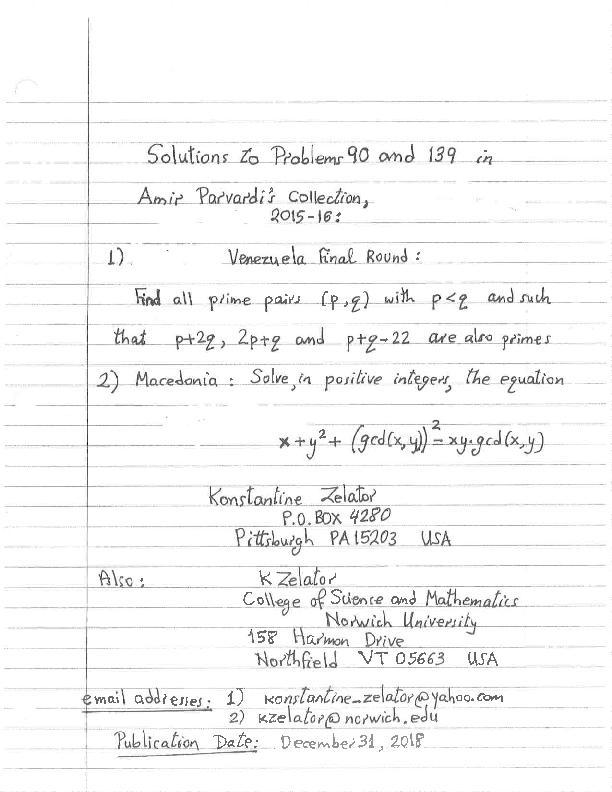 Solutions to Problems 90 and 139 in
Amir Parvardi's Collection,
2015-16:
1) Venezuela Final Round:
Find all prime pairs (p,q) with p<q and such
that p+2q, 2p+q and p+q-22 are also primes
2) Macedonia: Solve, in positive integers, the equation
x+y²+(gcd(x,y))²=xy·gcd(x,y)
Konstantine Zelator
P.O. BOX 4280
Pittsburgh PA 15203 USA
Also: K Zelator
College of Science and Mathematics
Norwich University
158 Harmon Drive
Northfield VT 05663 USA
email addresses: 1) konstantine_zelator@yahoo.com
2) kzelator@norwich.edu
Publication Date: December 31, 2018